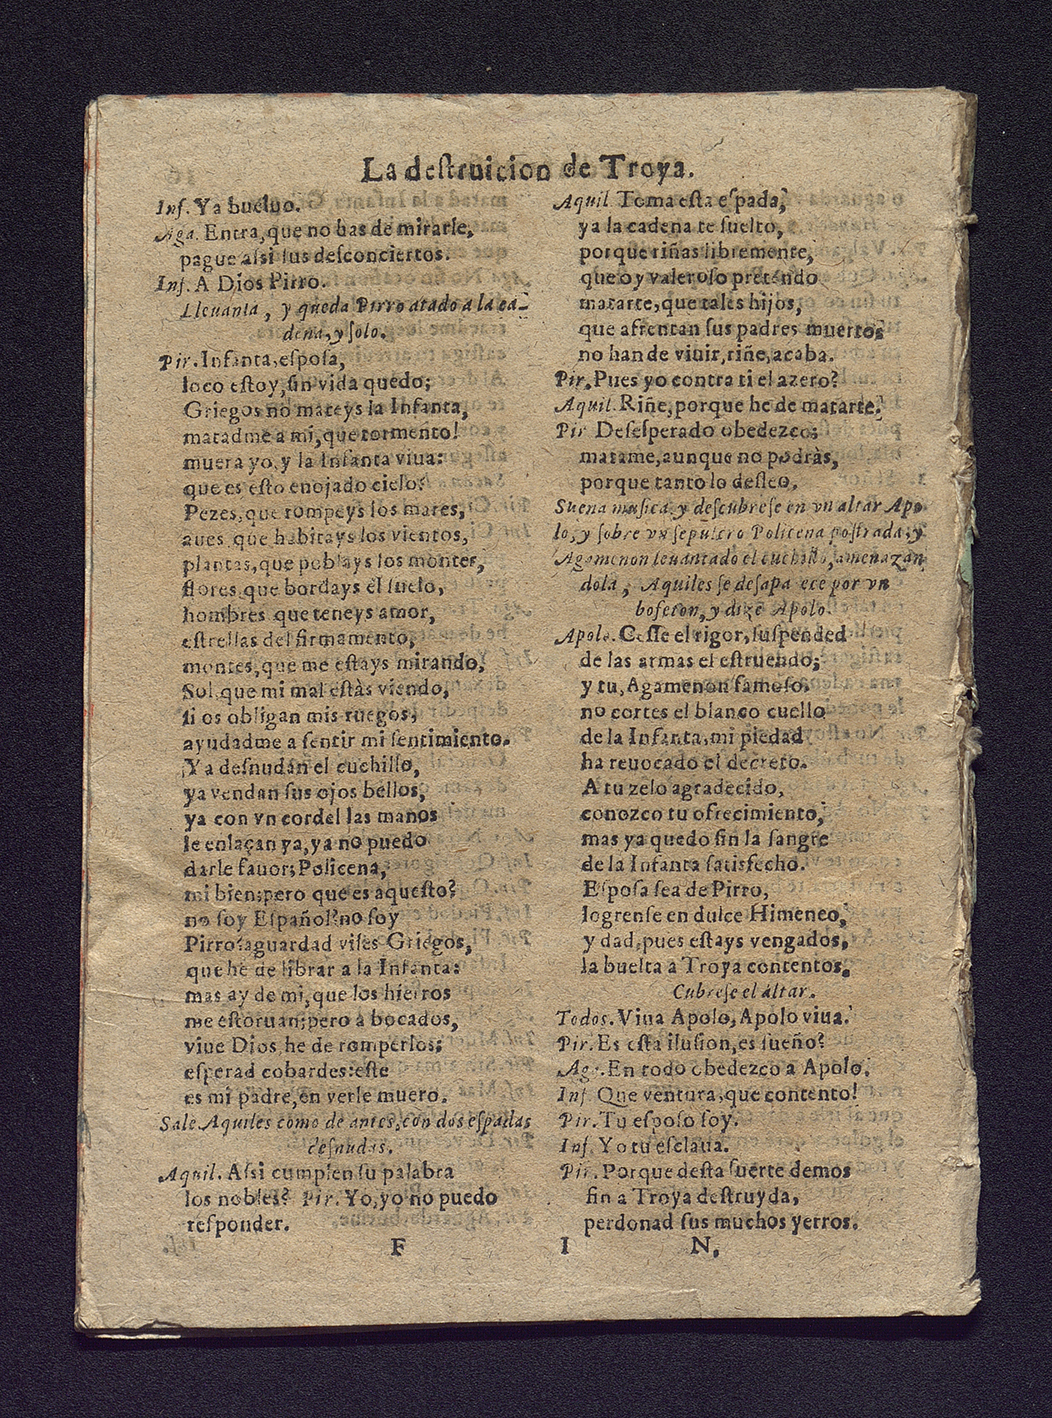 La destruicion de Troya.
Inf. Ya bueluo.
Aga. Entra, que no has de mirarle,
pague assi sus desconciertos.
Inf. A Dios Pirro.
Lleuanla, y queda Pirro atado a la ca-
dena, y solo.
Pir. Infanta, esposa,
loco estoy, sin vida quedo;
Griegos no mateys la Infanta,
matadme a mi, que tormento!
muera yo, y la Infanta viua:
que es esto enojado cielo?
Pezes, que rompeys los mares,
aues, que habitays los vientos,
plantas, que poblays los montes,
flores, que bordays el suelo,
hombres que teneys amor,
estrellas del firmamento,
montes, que me estays mirando,
Sol, que mi mal estàs viendo,
si os obligan mis ruegos,
ayudadme a sentir mi sentimiento.
Ya desnudan el cuchillo,
ya vendan sus ojos bellos,
ya con vn cordel las manos
le enlaçan ya, ya no puedo
darle fauor; Policena,
mi bien; pero que es aquesto?
no soy Español? no soy
Pirro? aguardad viles Griegos,
que he de librar a la Infanta:
mas ay de mi, que los hierros
me estoruan; pero à bocados,
viue Dios, he de romperlos;
esperad cobardes: este
es mi padre, en verle muero.
Sale Aquiles como de antes, con dos espadas
desnudas.
Aquil. Assi cumplen su palabra
los nobles? Pir. Yo, yo no puedo
responder.
Aquil Toma esta espada,
ya la cadena te suelto,
porque riñas libremente,
que oy valeroso pretendo
matarte, que tales hijos,
que afrentan sus padres muertos
no han de viuir, riñe, acaba.
Pir. Pues yo contra ti el azero?
Aquil. Riñe, porque he de matarte.
Pir Desesperado obedezco;
matame, aunque no podràs,
porque tanto lo desseo.
Suena musica, y descubrese en vn altar Apo
lo, y sobre vn sepulcro Policena postrada, y
Agamenon leuantado el cuchillo, amenazan
dola, Aquiles se desaparece por vn
bofeton, y dize Apolo.
Apolo. Cesse el rigor, suspended
de las armas el estruendo;
y tu, Agamenon famoso,
no cortes el blanco cuello
de la Infanta, mi piedad
ha reuocado el decreto.
A tu zelo agradecido,
conozco tu ofrecimiento,
mas ya quedo sin la sangre
de la Infanta satisfecho.
Esposa sea de Pirro,
logrense en dulce Himeneo,
y dad, pues estays vengados,
la buelta à Troya contentos.
Cubrese el altar.
Todos. Viua Apolo, Apolo viua.
Pir. Es esta ilusion, es sueño?
Ag. En todo obedezco a Apolo.
Inf. Que ventura, que contento!
Pir. Tu esposo soy.
Inf. Yo tu esclaua.
Pir. Porque desta suerte demos
fin a Troya destruyda,
perdonad sus muchos yerros.
F I N.